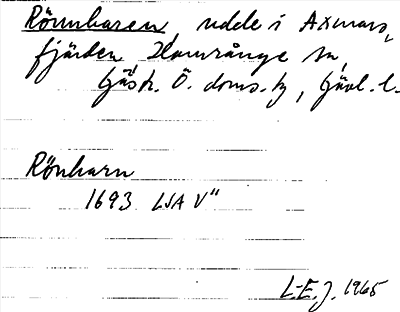 Rönnharen, udde i Axmars,
fjärden, Hamrånge sn,
Gästr. Ö. doms. tg, Gävl. l.
Rönharn
1693 LSA V"
L-E. J. 1965